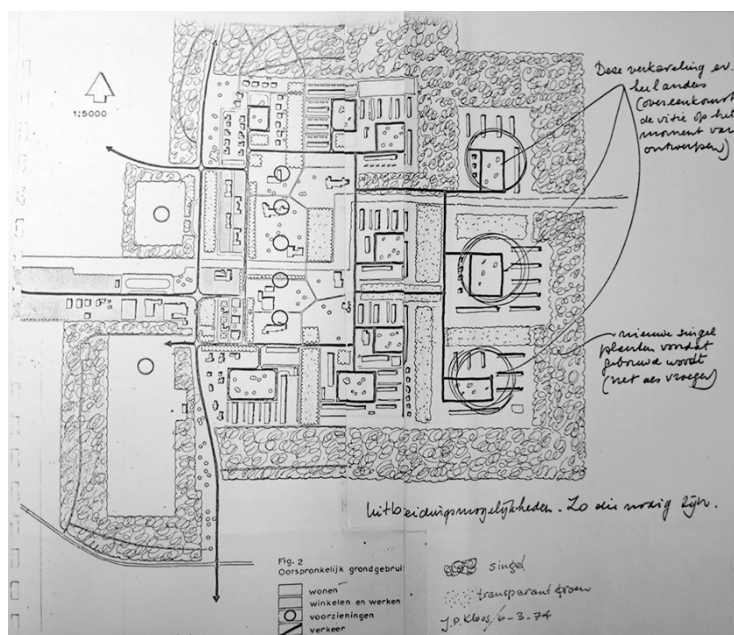 1:5000
Deze verkaveling ev.
heel anders
(overeenkomstig
de visie op het
moment van
ontwerpen)
nieuwe singel
planten voordat
gebouwd wordt
(net als vroeger)
Uitbreidingsmogelijkheden. Zo die nodig zijn.
Fig. 2
Oorspronkelijk grondgebruik
wonen
winkelen en werken
voorzieningen
verkeer
singel
transparant groen
J.P. Kloos, 6-3-74